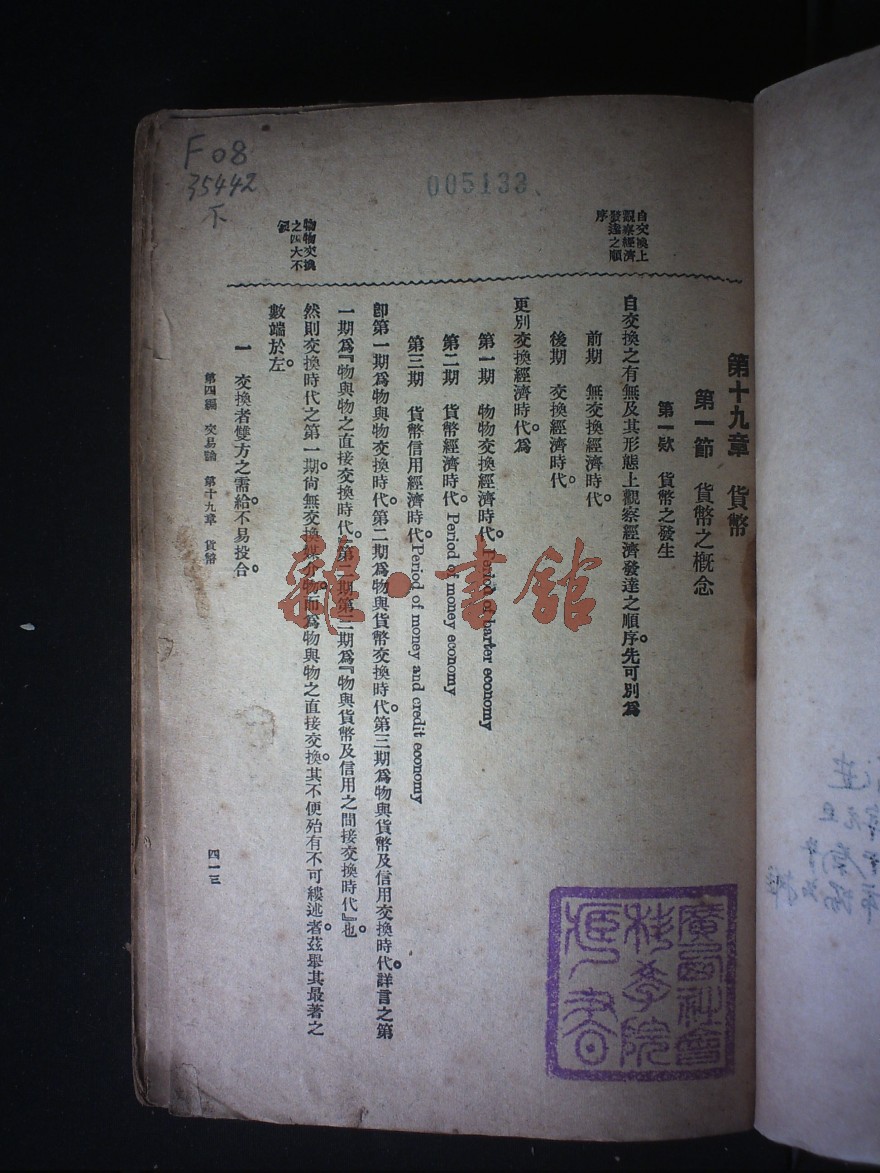 F08
35442
下
005133
自交換上
觀察經濟
發達之順
序
物物交換
之四大不
便
第十九章 貨幣
第一節 貨幣之概念
第一款 貨幣之發生
自交換之有無及其形態上觀察經濟發達之順序。先可別爲
前期 無交換經濟時代。
後期 交換經濟時代。
更別交換經濟時代。爲
第一期 物物交換經濟時代。Period of barter economy
第二期 貨幣經濟時代。Period of money economy
第三期 貨幣信用經濟時代。Period of money and credit economy
卽第一期爲物與物交換時代。第二期爲物與貨幣交換時代。第三期爲物與貨幣及信用交換時代。詳言之第
一期爲『物與物之直接交換時代。』第二期第三期爲『物與貨幣及信用之間接交換時代』也。
然則交換時代之第一期。尙無交換媒介物。而爲物與物之直接交換。其不便殆有不可縷述者。茲舉其最著之
數端於左。
一 交換者雙方之需給。不易投合。
第四編 交易論 第十九章 貨幣
四一三
雜·書館